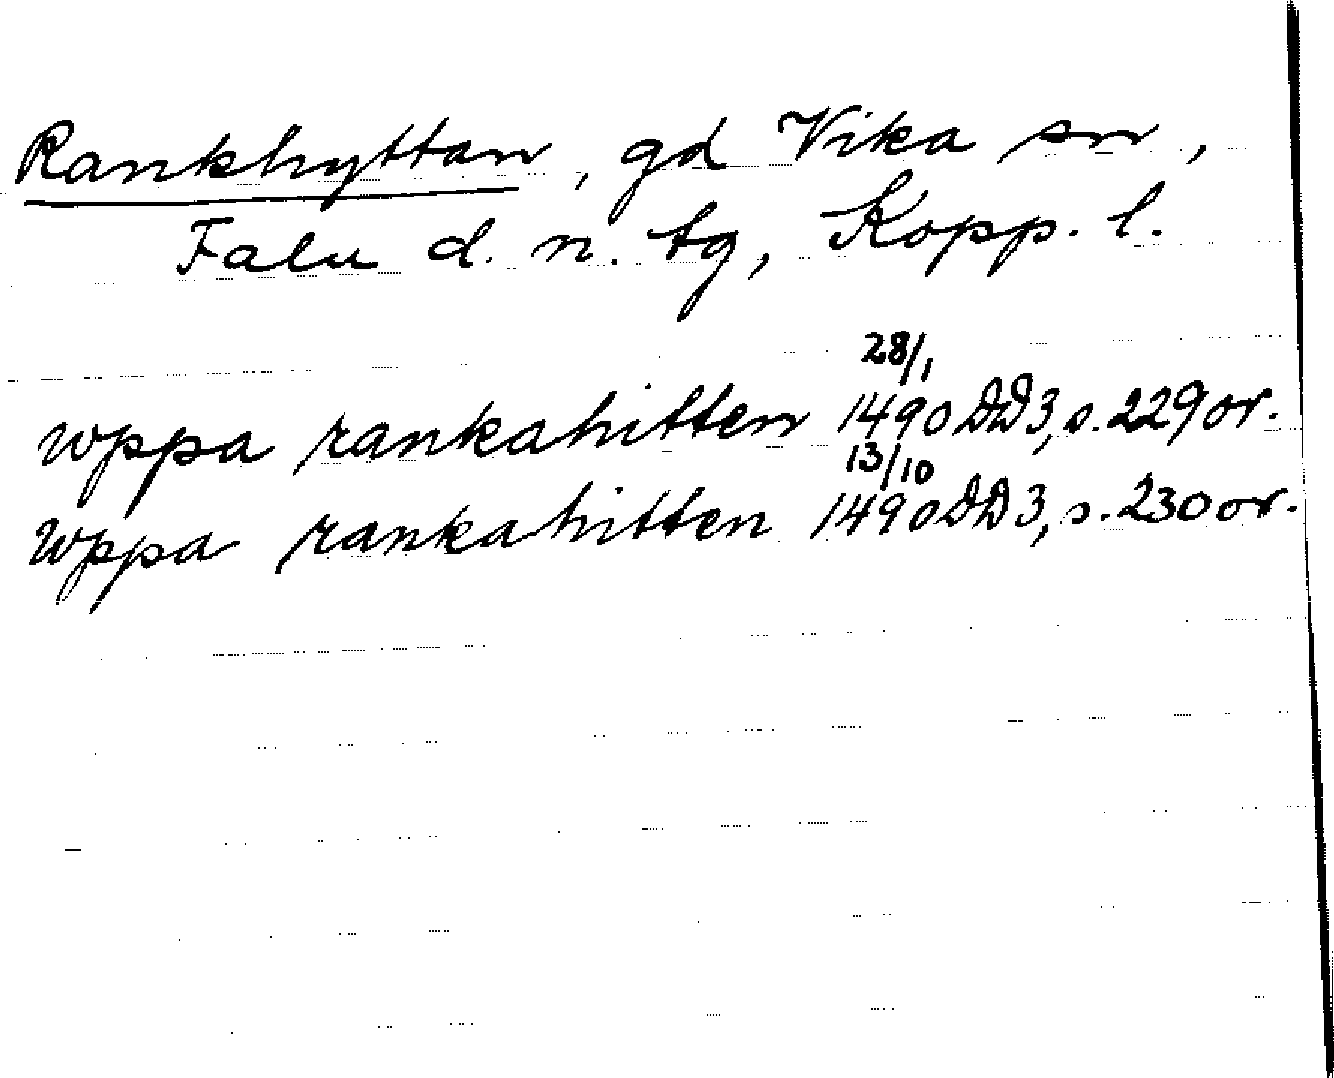 Rankhyttan, gd Vika sn,
Falu d. n. tg, Kopp. l.
wppa rankahitten 28/1 1490 DD3, s. 229 or.
wppa rankahitten 13/10 1490 DD3, s. 230 or.